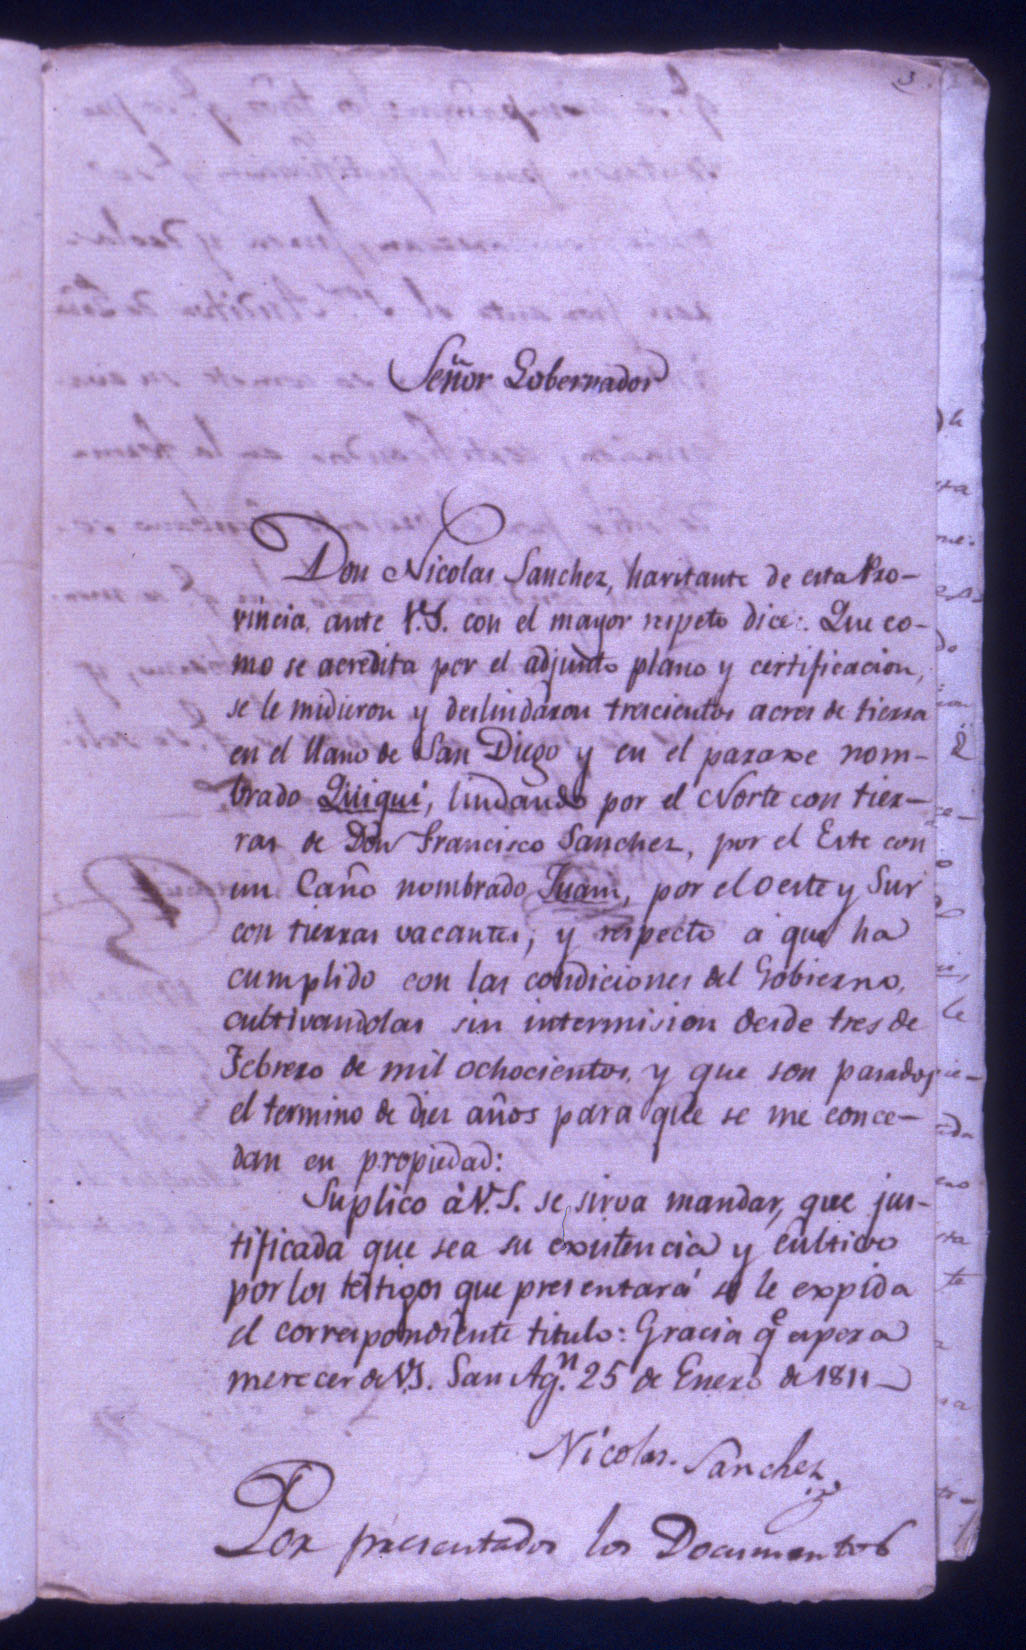 3.
Señor Gobernador
Don Nicolas Sanchez, havitante de esta Pro-
vincia, ante V.S. con el mayor respeto dice: Que co-
mo se acredita por el adjunto plano y certificacion,
se le midieron y deslindaron trescientos acres de tierra
en el llano de San Diego y en el paraxe nom-
brado Quiqui, lindando por el Norte con tier-
ras de Don Francisco Sanchez, por el Este con
un Caño nombrado Juam, por el oeste y Sur
con tierras vacantes; y respecto á que ha
cumplido con las condiciones del Gobierno,
cultivandolas sin intermision desde tres de
Febrero de mil ochocientos, y que son pasados
el termino de diez años para que se me conce-
dan en propiedad:
Suplico á V.S. se sirva mandar, que jus-
tificada que sea su existencia y cultivo
por los testigos que presentará se le expida
el correspondiente titulo: Gracia qe espera
merecer de V.S. San Ag.n 25 de Enero de 1811
Nicolas Sanchez
Por presentados los Documentos